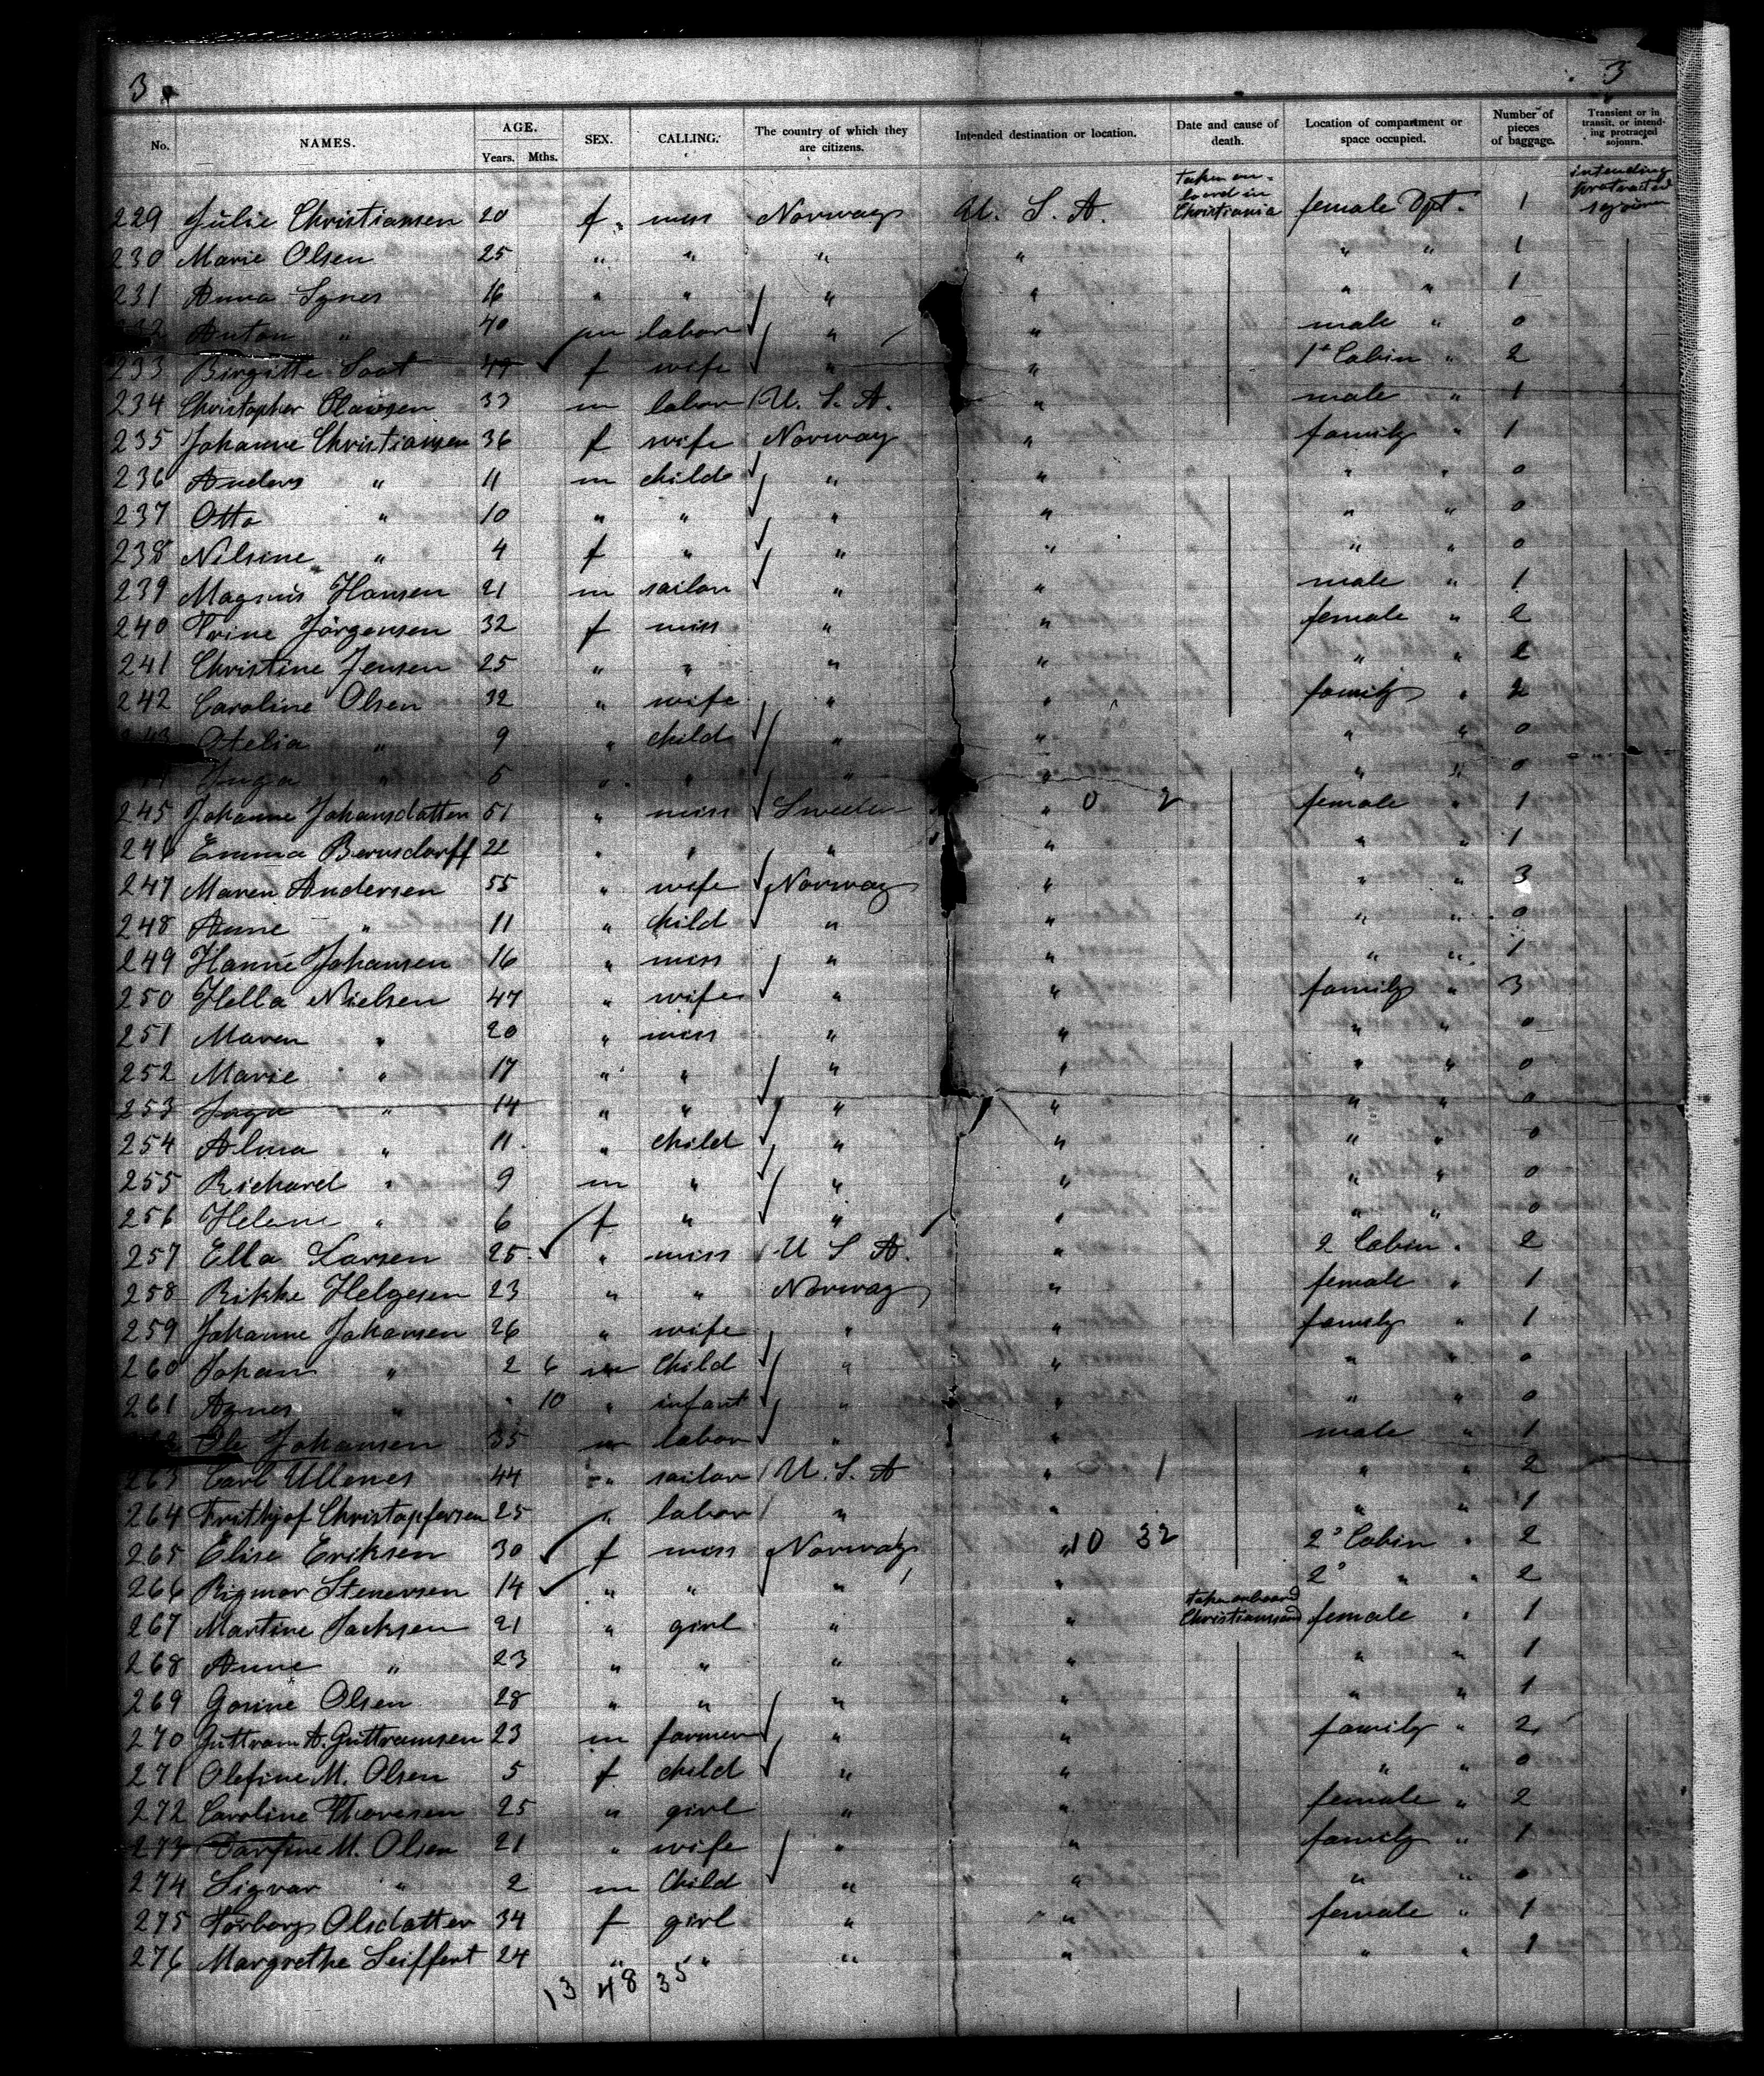 3 3
No. NAMES. AGE. Years. Mths. SEX. CALLING. The country of which they are citizens. Intended destination or location. Date and cause of death. Location of compartment or space occupied. Number of pieces of baggage. Transient or in transit, or intending protracted sojourn.
229 Julie Christiansen 20 f. miss Norway U. S. A. taken on board in Christiania female Dpt. 1 intending protracted
230 Marie Olsen 25 " " " " " " 1
231 Anna Sgnes 16 " " " " " " 1
232 Anton " 40 m labor " " male " 0
233 Birgitte Soot 49 f wife " " 1st Cabin " 2
234 Christopher Olawsen 33 m labor U. S. A. " male " 1
235 Johanne Christiansen 36 f wife Norway " family " 1
236 Anders " 11 m child " " " " 0
237 Otto " 10 " " " " " " 0
238 Nilsine " 4 f " " " " " 0
239 Magnus Hansen 21 m sailor " " male " 1
240 Trine Jörgensen 32 f miss " " female " 2
241 Christine Jensen 25 " " " " " " 2
242 Caroline Olsen 32 " wife " " family " 2
243 Otelia " 9 " child " " " " 0
Inga " 5 " " " " " " 0
245 Johanne Johansdatter 51 " miss Sweden " 0 2 female " 1
246 Emma Bernsdorff 22 " " " " " " 1
247 Maren Andersen 55 " wife Norway " " " 3
248 Anne " 11 " child " " " " 0
249 Hanne Johansen 16 " miss " " " " 1
250 Hella Nielsen 47 " wife " " family " 3
251 Maren " 20 " miss " " " " 0
252 Marie " 17 " " " " " " 0
253 Inga " 14 " " " " " " 0
254 Alma " 11 " child " " " " 0
255 Richard " 9 m " " " " " 0
256 Helene " 6 f " " " " " 0
257 Ella Larsen 25 " miss U S A. " 2 Cabin " 2
258 Rikke Helgesen 23 " " Norway " female " 1
259 Johanne Johansen 26 " wife " " family " 1
260 Johan " 2 6 m Child " " " " 0
261 Agnes " " 10 " infant " " " " 0
Ole Johansen 35 m labor " " male " 1
263 Carl Ullenes 44 " sailor U. S. A " 1 " " 2
264 Frithjof Christopfersen 25 " labor " " " " 1
265 Elise Eriksen 30 f miss Norway " 10 32 2° Cabin " 2
266 Rigmor Stenersen 14 " " " " 2° " " 2
267 Martine Jacksen 21 " girl " " taken onboard Christiansand female " 1
268 Anne " 23 " " " " " " 1
269 Gosine Olsen 28 " " " " " " 1
270 Guttram A. Guttramsen 23 m farmer " " family " 2
271 Olefine M. Olsen 5 f child " " " " 0
272 Caroline Thoresen 25 " girl " " female " 2
273 Tarfine M. Olsen 21 " wife " " family " 1
274 Sigvar " 2 m Child " " " " 0
275 Torborg Olsdatter 34 f girl " " female " 1
276 Margrethe Seiffert 24 " " " " " " 1
13 48 35